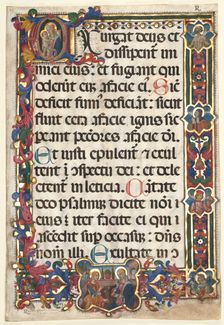 Exurgat deus et
dissipentur ini
mici eius: et fugiant qui
oderunt eum a facie eius. Sic
deficit fumus deficiant: sicut
fluit cera a facie ignis sic
pereant peccatores a facie dei
Et iusti epulentur et exul
tent in conspectu dei: et dele
ctentur in leticia. Cantate
deo psalmum dicite nomini
eius iter facite ei qui
ascendit sup occasum: dns
nomen illi. Exultate in